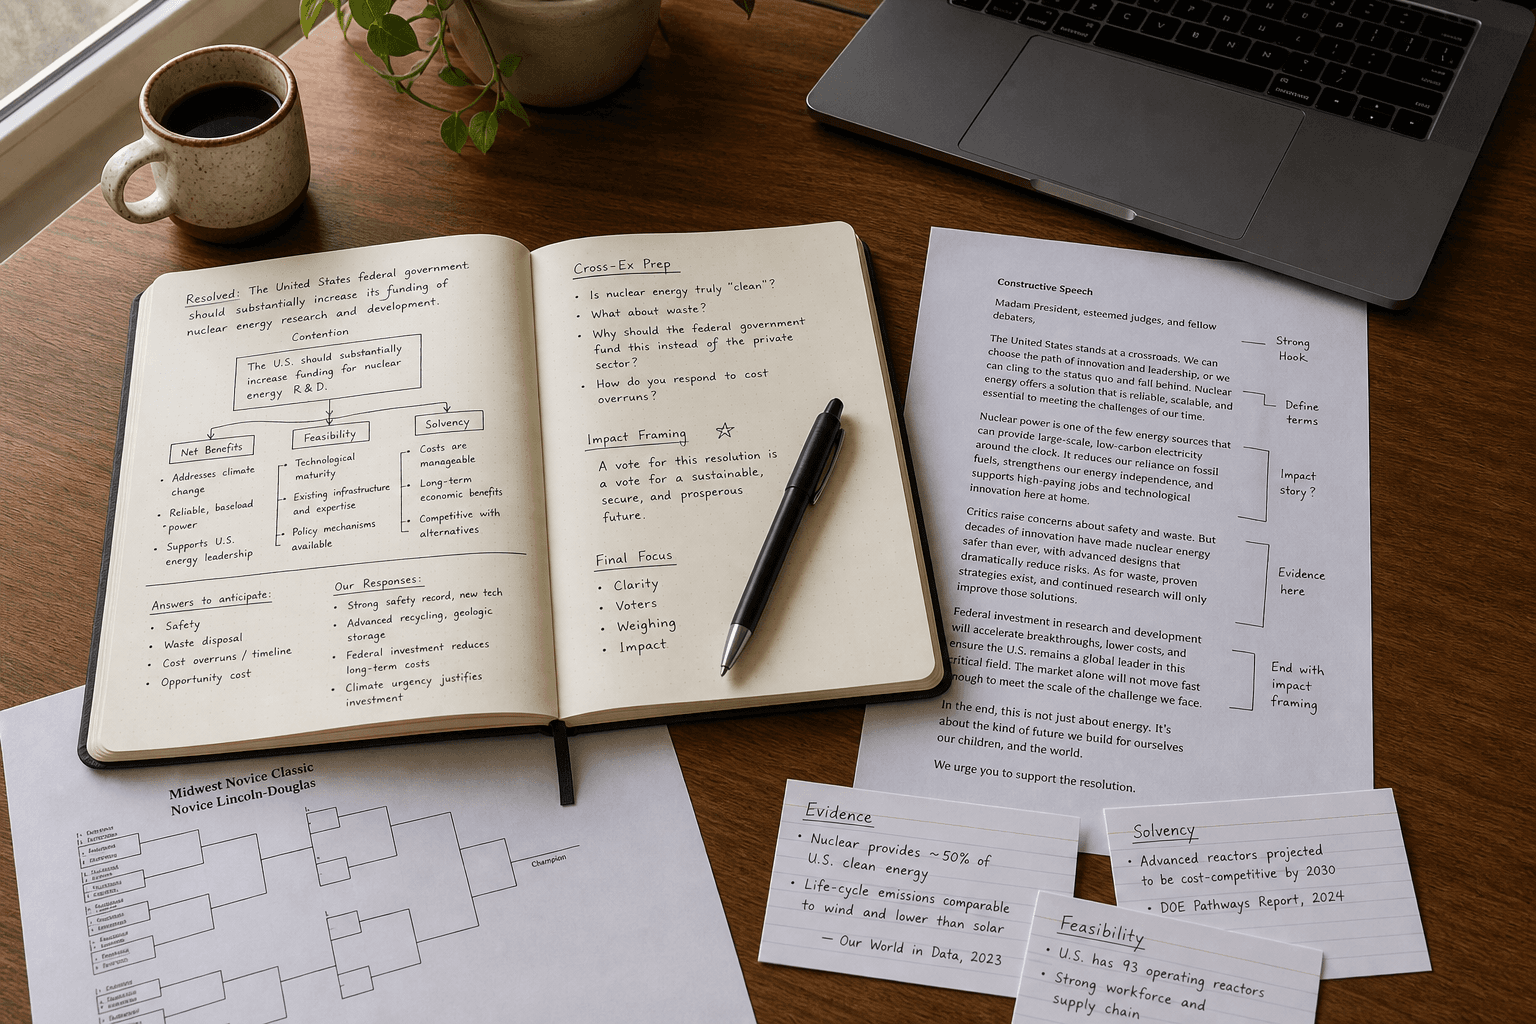 Resolved: The United States federal government
should substantially increase its funding of
nuclear energy research and development.
Contention
The U.S. should substantially
increase funding for nuclear
energy R & D.
Net Benefits
• Addresses climate
change
• Reliable, baseload
power
• Supports U.S.
energy leadership
Feasibility
Technological
maturity
Existing infrastructure
and expertise
Policy mechanisms
available
Solvency
• Costs are
manageable
• Long-term
economic benefits
• Competitive with
alternatives
Answers to anticipate:
• Safety
• Waste disposal
• Cost overruns / timeline
• Opportunity cost
Our Responses:
• Strong safety record, new tech
• Advanced recycling, geologic
storage
• Federal investment reduces
long-term costs
• Climate urgency justifies
investment
Cross-Ex Prep
• Is nuclear energy truly "clean"?
• What about waste?
• Why should the federal government
fund this instead of the private
sector?
• How do you respond to cost
overruns?
Impact Framing ☆
A vote for this resolution is
a vote for a sustainable,
secure, and prosperous
future.
Final Focus
• Clarity
• Voters
• Weighing
• Impact
Constructive Speech
Madam President, esteemed judges, and fellow
debaters,
The United States stands at a crossroads. We can
choose the path of innovation and leadership, or we
can cling to the status quo and fall behind. Nuclear
energy offers a solution that is reliable, scalable, and
essential to meeting the challenges of our time.
Nuclear power is one of the few energy sources that
can provide large-scale, low-carbon electricity
around the clock. It reduces our reliance on fossil
fuels, strengthens our energy independence, and
supports high-paying jobs and technological
innovation here at home.
Critics raise concerns about safety and waste. But
decades of innovation have made nuclear energy
safer than ever, with advanced designs that
dramatically reduce risks. As for waste, proven
strategies exist, and continued research will only
improve those solutions.
Federal investment in research and development
will accelerate breakthroughs, lower costs, and
ensure the U.S. remains a global leader in this
critical field. The market alone will not move fast
enough to meet the scale of the challenge we face.
In the end, this is not just about energy. It's
about the kind of future we build for ourselves
our children, and the world.
We urge you to support the resolution.
Strong
Hook
Define
terms
Impact
story?
Evidence
here
End with
impact
framing
Midwest Novice Classic
Novice Lincoln-Douglas
Champion
Evidence
• Nuclear provides ~50% of
U.S. clean energy
• Life-cycle emissions comparable
to wind and lower than solar
— Our World in Data, 2023
Solvency
• Advanced reactors projected
to be cost-competitive by 2030
• DOE Pathways Report, 2024
Feasibility
• U.S. has 93 operating reactors
• Strong workforce and
supply chain